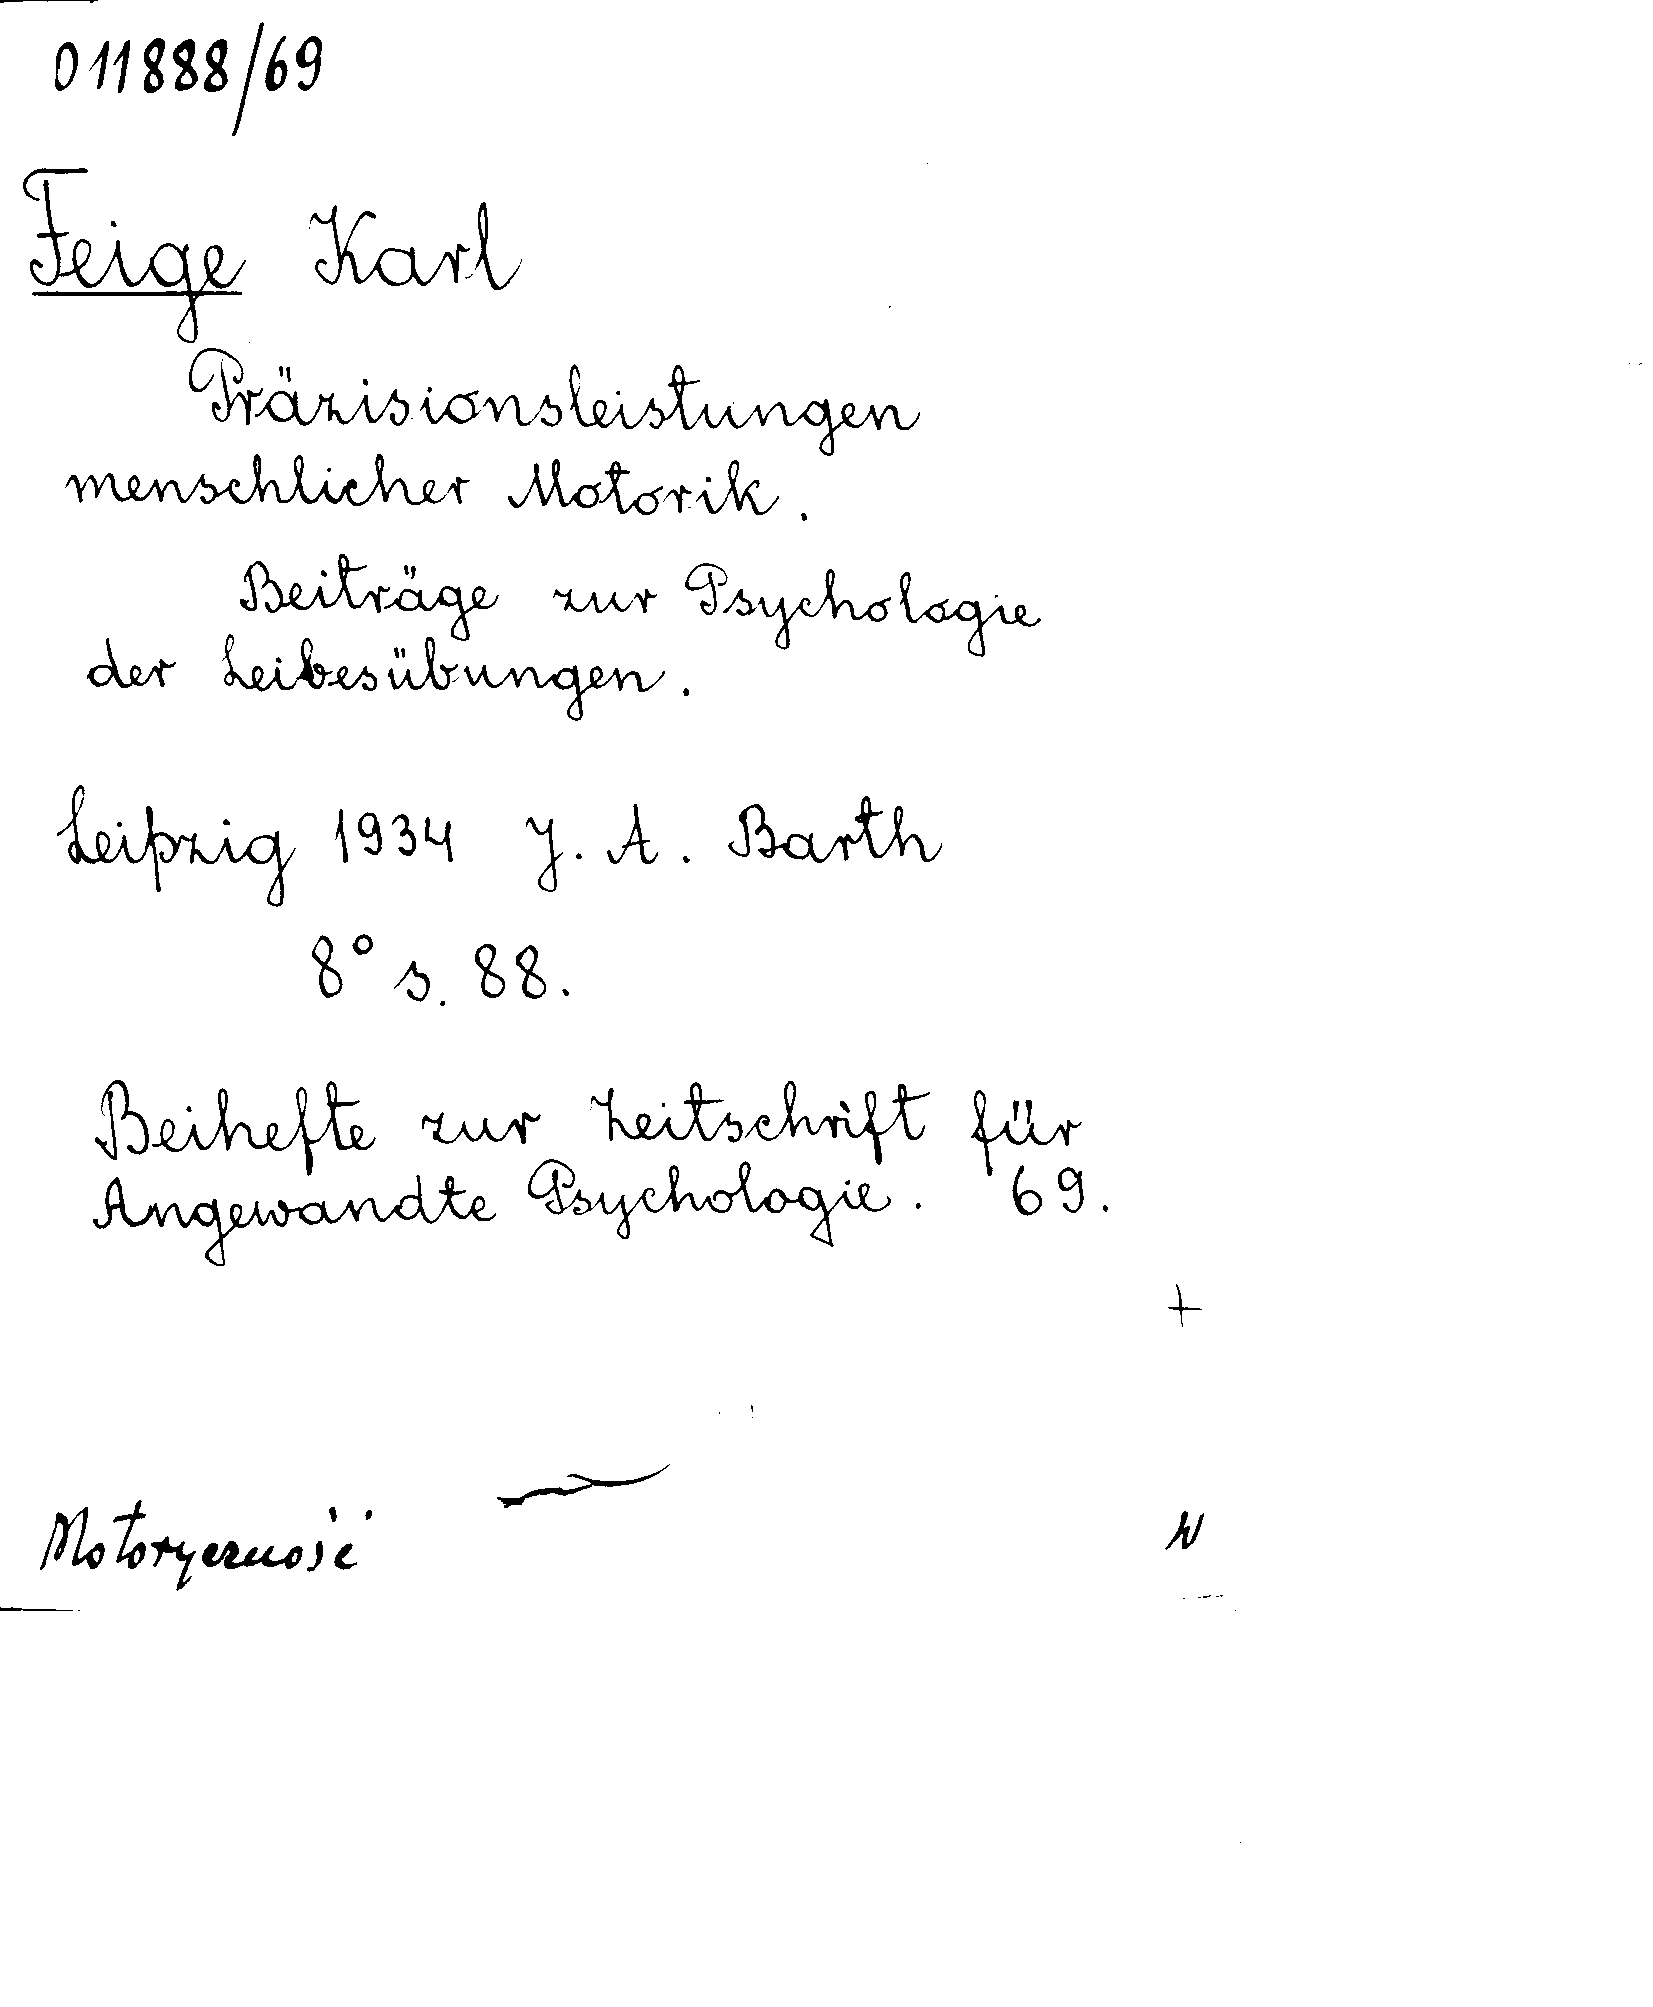 011888/69
Feige Karl
Präzisionsleistungen
menschlicher Motorik.
Beiträge zur Psychologie
der Leibesübungen.
Leipzig 1934 J. A. Barth
8° s. 88.
Beihefte zur Zeitschrift für
Angewandte Psychologie. 69.
+
Motoryczność